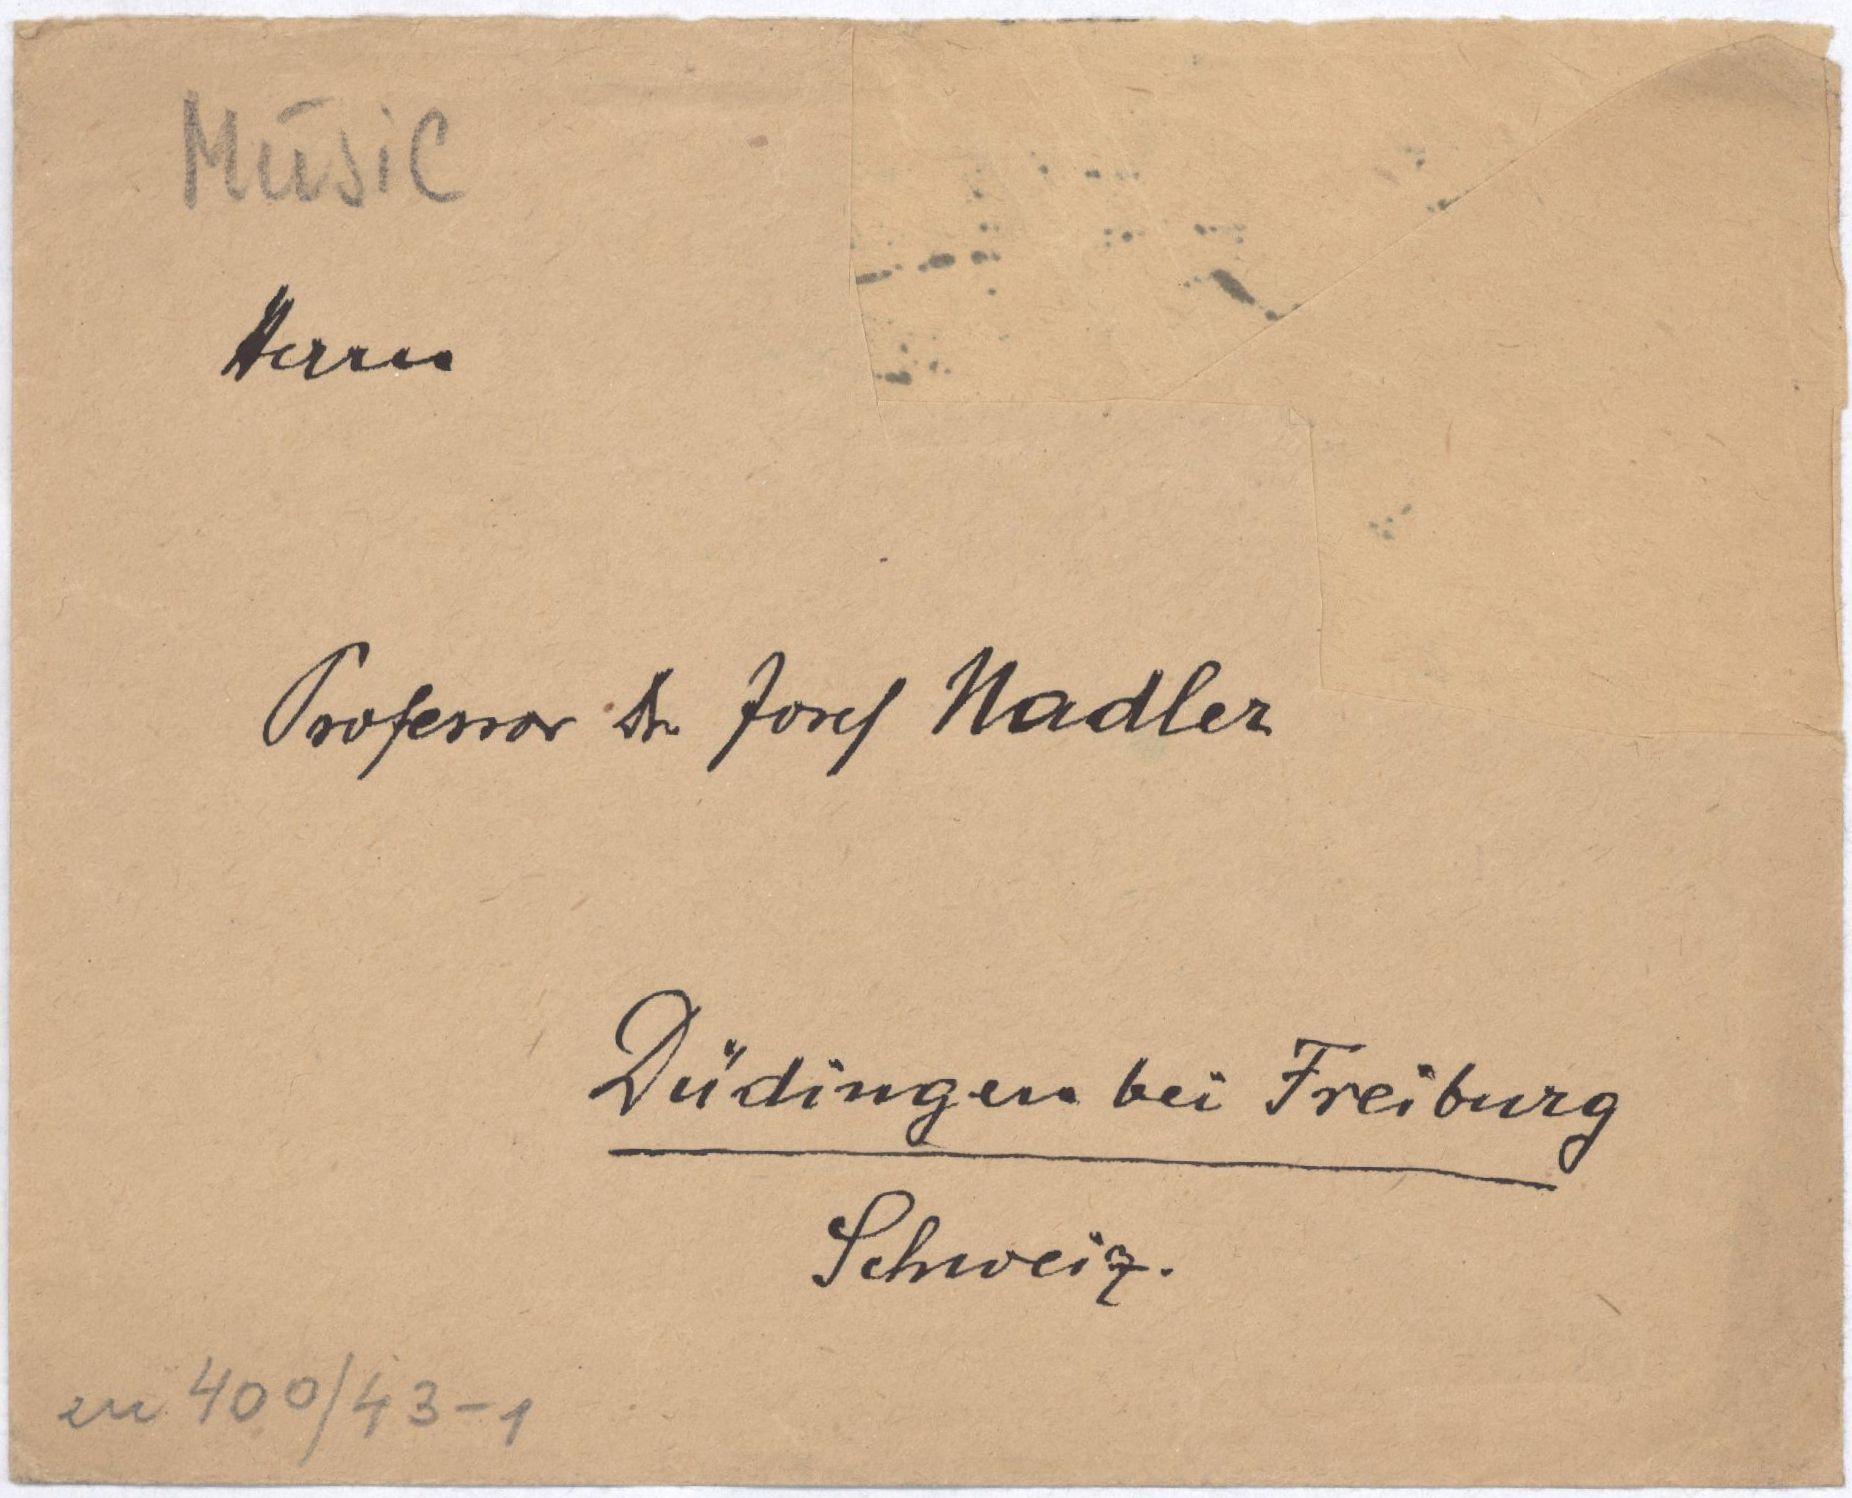 Musič
Herrn
Professor Dr. Josef Nadler
Düdingen bei Freiburg
Schweiz.
zu 400/43-1